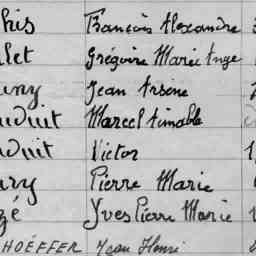 his François Alexandre
let Grégoire Marie Ange
uny Jean Arsène
uduit Marcel Aimable
duit Victor
ury Pierre Marie
zé Yves Pierre Marie
HOËFFER Jean Henri